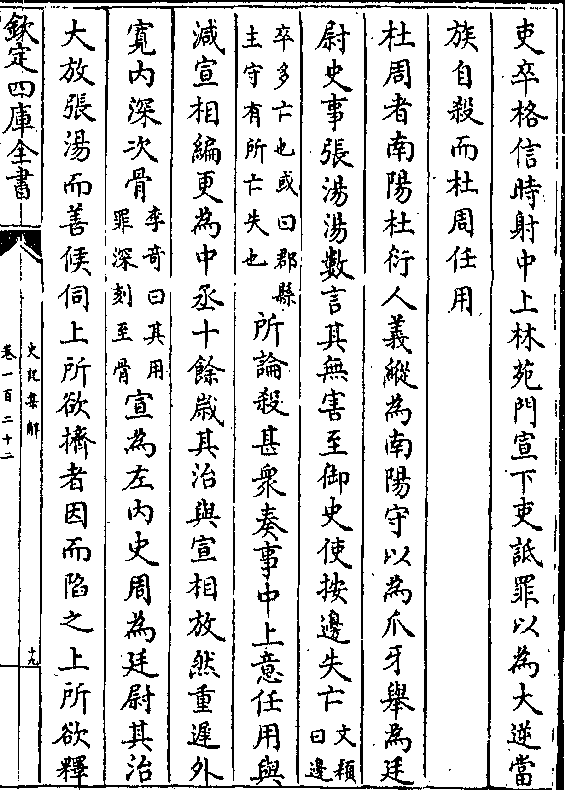 吏卒格信時射中上林苑門宣下吏詆罪以為大逆當
族自殺而杜周任用
杜周者南陽杜衍人義縱為南陽守以為爪牙舉為廷
尉史事張湯湯數言其無害至御史使按邊失亡文穎曰邊
卒多亡也或曰郡縣主守有所亡失也所論殺甚衆奏事中上意任用與
減宣相編更為中丞十餘嵗其治與宣相放然重遲外
寛内深次骨李奇曰其用罪深刻至骨宣為左内史周為廷尉其治
大放張湯而善候伺上所欲擠者因而陷之上所欲釋
欽定四庫全書
史記集解
卷一百二十二
十九